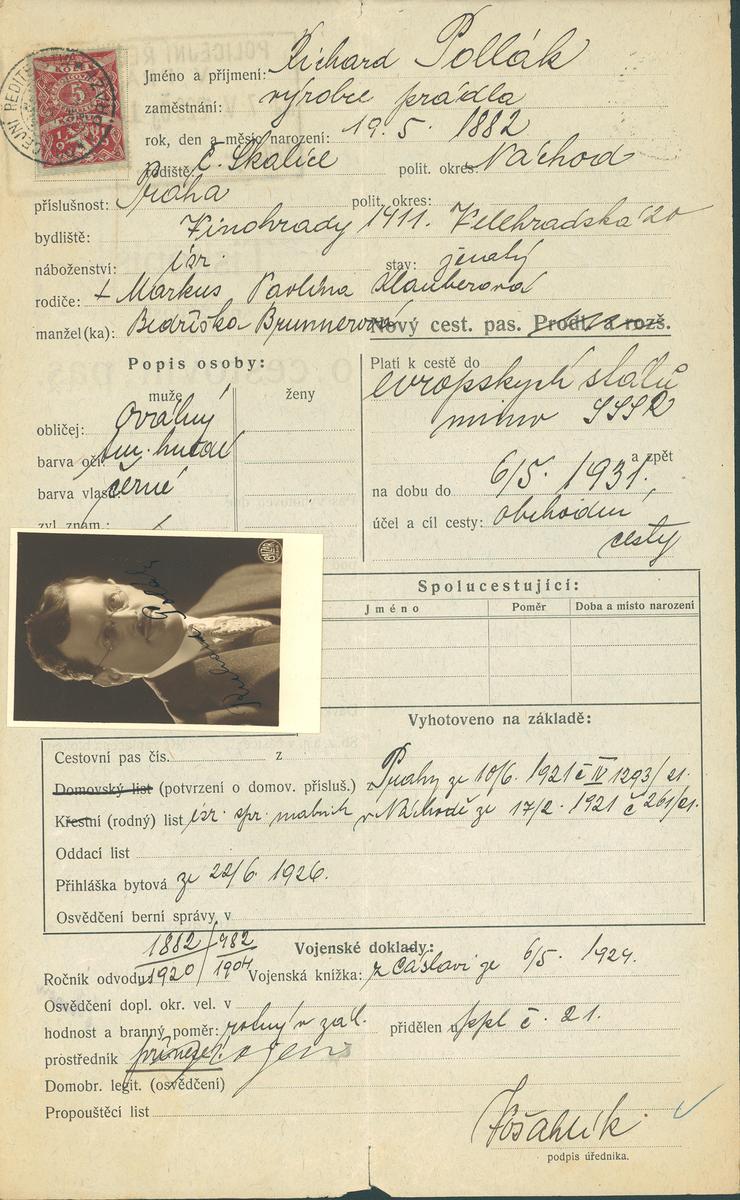 Jméno a příjmení: Richard Pollák
zaměstnání: výrobce prádla
rok, den a měsíc narození: 19. 5. 1882
rodiště: Č. Skalice polit. okres: Náchod
příslušnost: Praha polit. okres:
bydliště: Vinohrady 1411. Velehradská 20
náboženství: isr. stav: ženatý
rodiče: + Markus Pavlina Klauberová
manžel(ka): Bedřiška Brunnerová
Nový cest. pas. Prodl. a rozš.
Popis osoby:
muže ženy
obličej: oválný
barva očí: tm. hnědé
barva vlasů: černé
zvl. znam.:
Platí k cestě do
evropských států
mimo SSSR
a zpět
na dobu do 6/5. 1931.
účel a cíl cesty: obchodní
cesty
Richard Pollák
Spolucestující:
Jméno Poměr Doba a místo narození
Vyhotoveno na základě:
Cestovní pas čís. z
Domovský list (potvrzení o domov. přísluš.) z Prahy ze 10/6. 1921 č IV 1293/21.
Křestní (rodný) list isr. spr. matrik v Náchodě ze 17/2. 1921 č 261/21.
Oddací list
Přihláška bytová ze 22/6 1926.
Osvědčení berní správy v
Vojenské doklady:
1882/982
Ročník odvodu: 1920/1904 Vojenská knížka: z Čáslavi ze 6/5. 1924.
Osvědčení dopl. okr. vel. v
hodnost a branný poměr: rotný v zál. přidělen u ppl č. 21.
prostředník
Domobr. legit. (osvědčení)
Propouštěcí list
podpis úředníka.